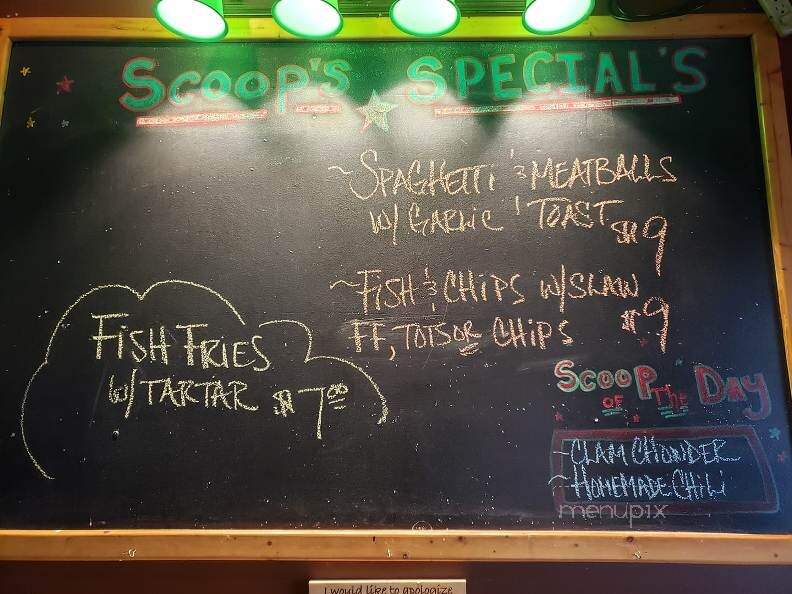 Scoop's SPECIAL'S
~SPAGHETTI & MEATBALLS
W/ GARLIC TOAST $9
~FISH & CHIPS W/SLAW
FF, TOTS OR CHIPS $9
FISH FRIES
W/ TARTAR $7.00
Scoop OF The Day
~CLAM CHOWDER
~HOMEMADE CHILI
menupix
I would like to apologize